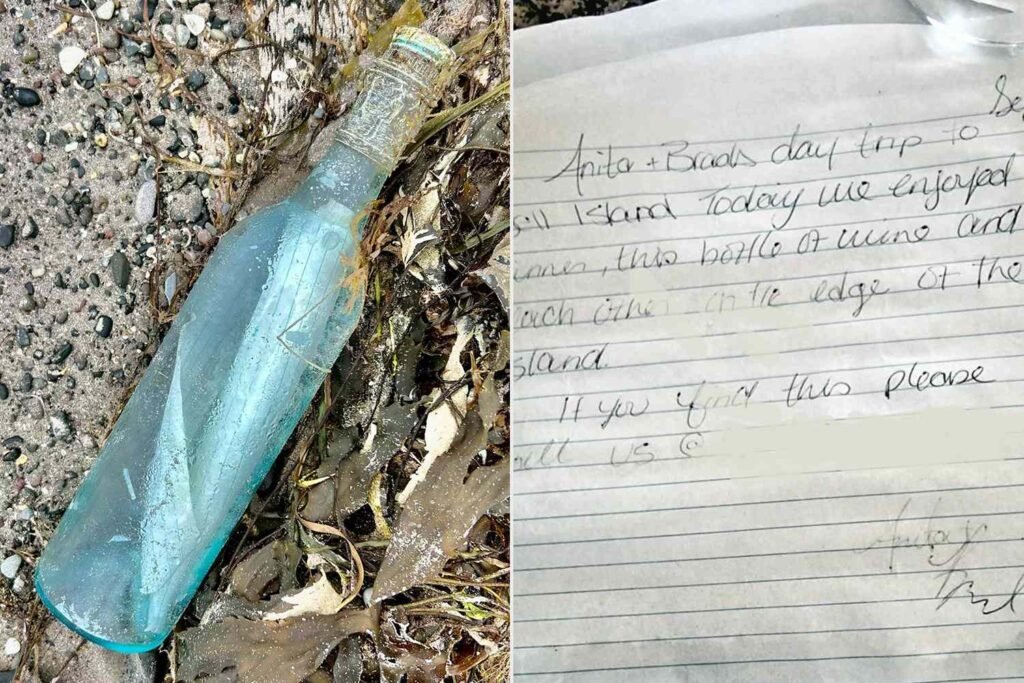 Se
Anita + Brads day trip to
ll Island Today we enjoyed
inner, this bottle of wine and
ach other on the edge of the
sland.
If you find this please
all us @
Anita